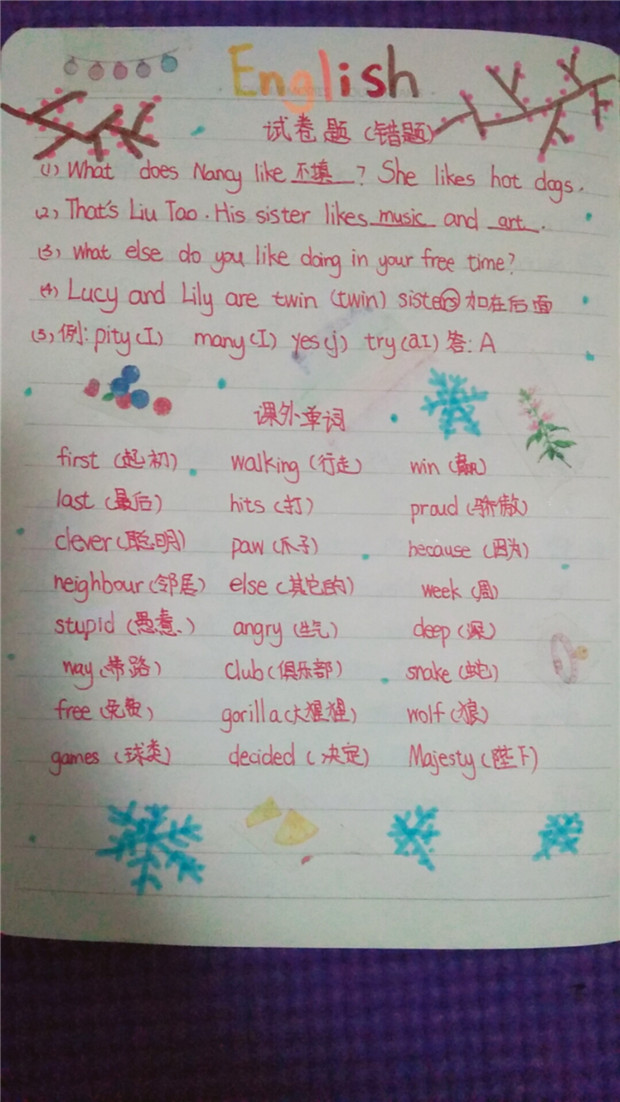 English
试卷题(错题)
(1) What does Nancy like 不填? She likes hot dogs.
(2) That's Liu Tao. His sister likes music and art.
(3) What else do you like doing in your free time?
(4) Lucy and Lily are twin (twin) sisters 加在后面
(5) 例: pity(I) many(I) yes(j) try(aI) 答: A
课外单词
first (起初) walking (行走) win (赢)
last (最后) hits (打) proud (骄傲)
clever (聪明) paw (爪子) because (因为)
neighbour (邻居) else (其它的) week (周)
stupid (愚意、) angry (生气) deep (深)
way (带路) club (俱乐部) snake (蛇)
free (免费) gorilla (大猩猩) wolf (狼)
games (球类) decided (决定) Majesty (陛下)